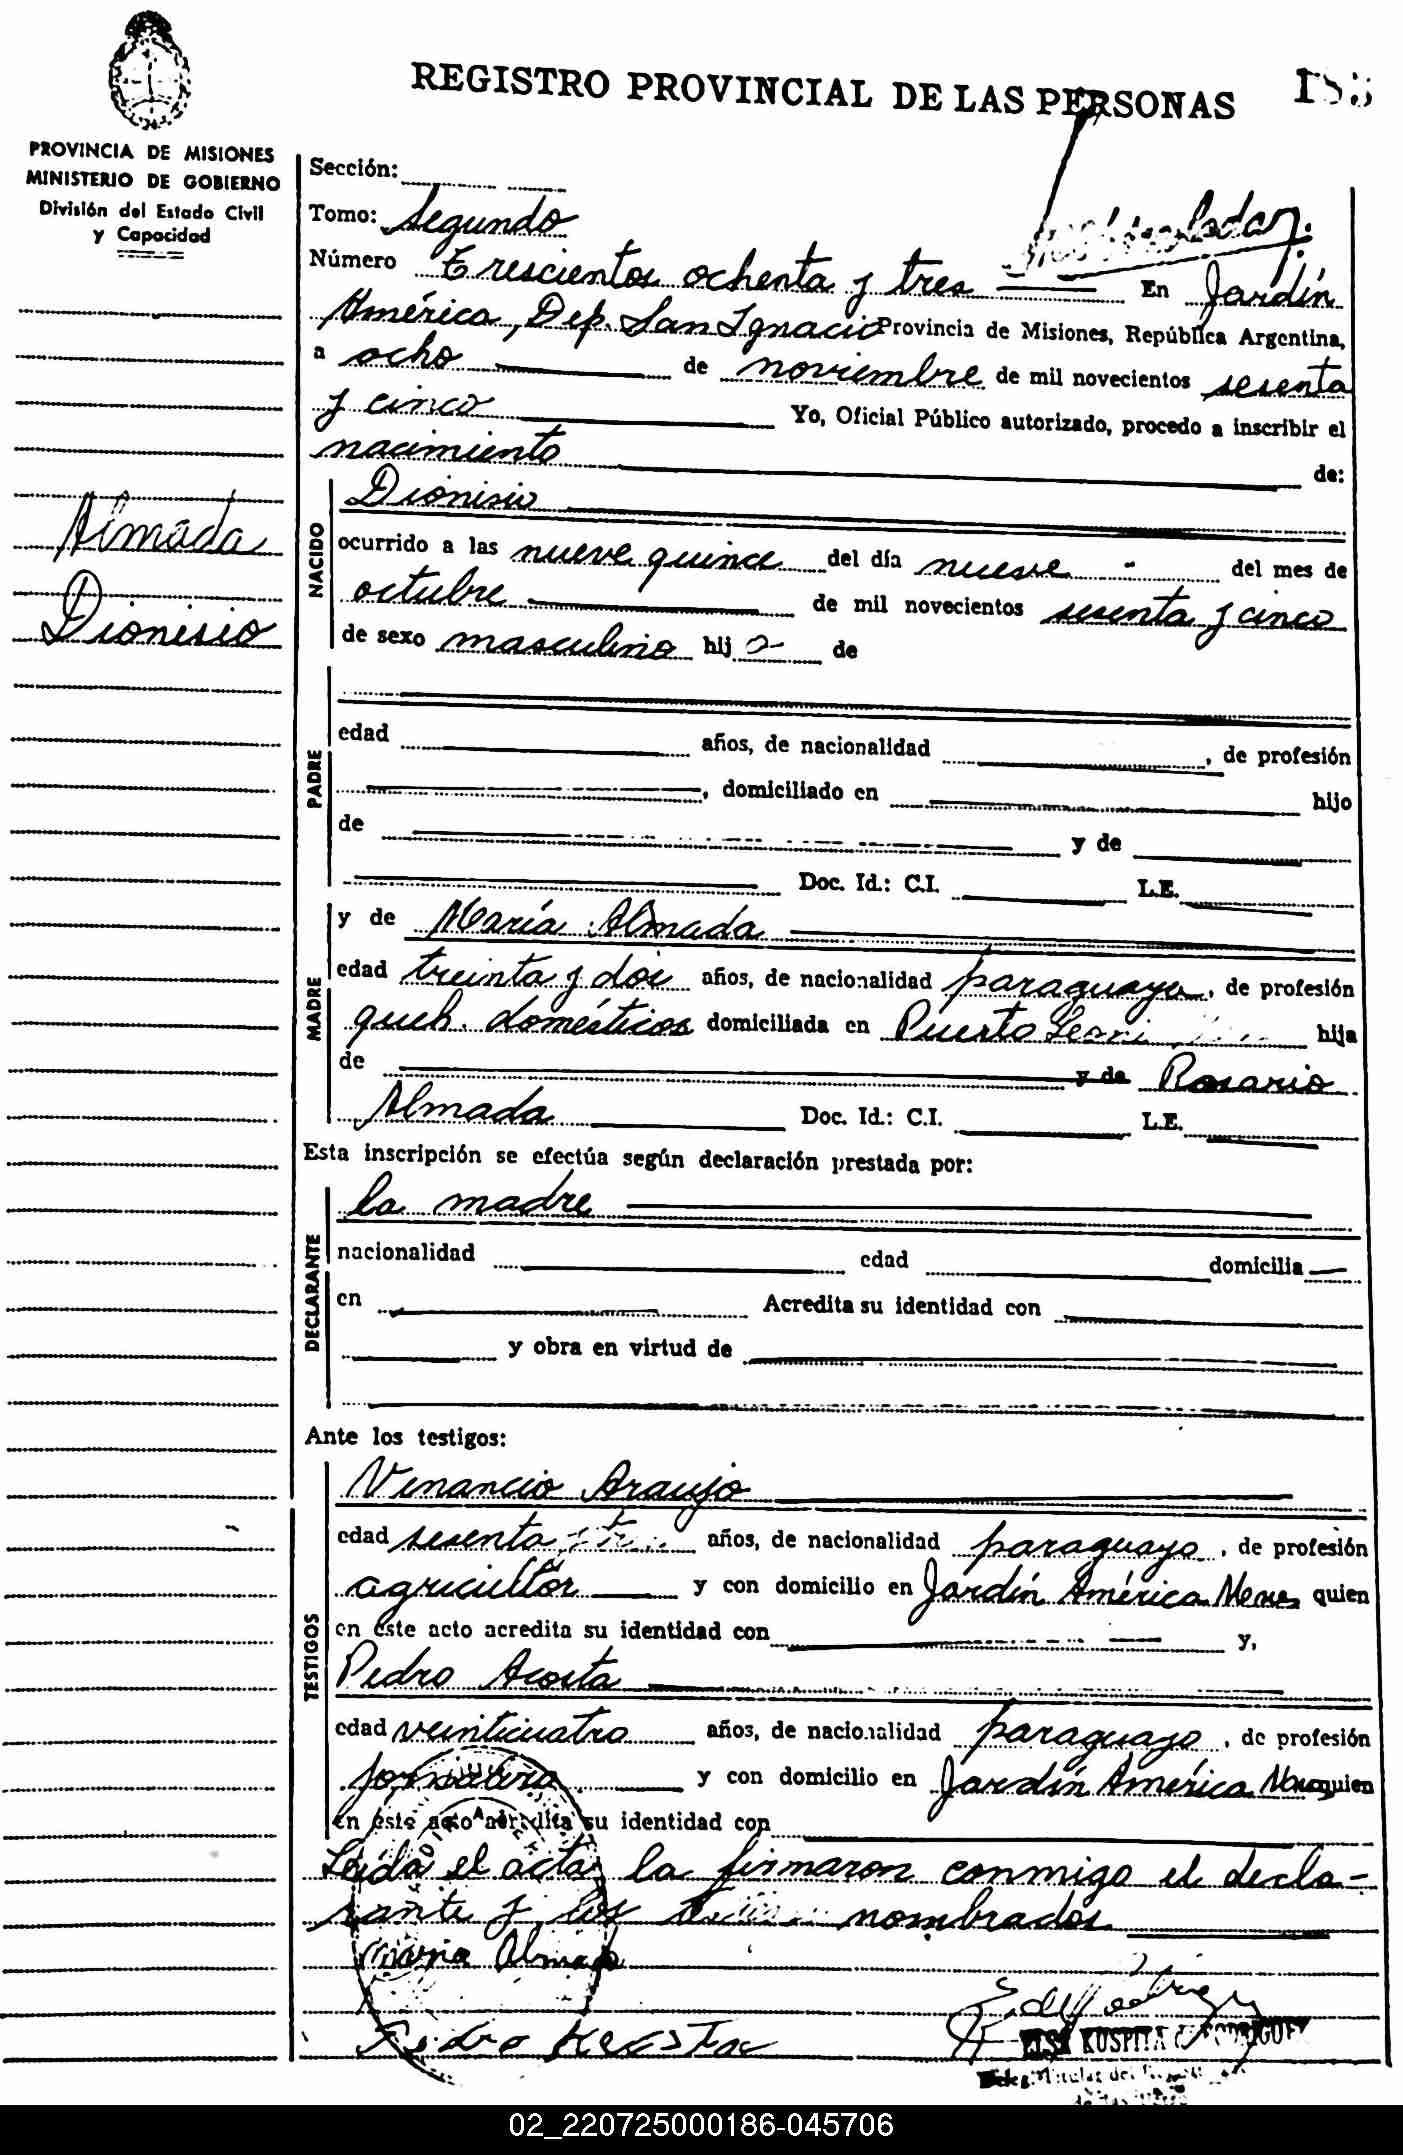 REGISTRO PROVINCIAL DE LAS PERSONAS
PROVINCIA DE MISIONES
MINISTERIO DE GOBIERNO
División del Estado Civil
y Capacidad
Sección:
Tomo: Segundo
Número Trescientos ochenta y tres En Jardín
América, Dep. San Ignacio Provincia de Misiones, República Argentina,
a ocho de noviembre de mil novecientos sesenta
y cinco Yo, Oficial Público autorizado, procedo a inscribir el
nacimiento de:
Almada
Dionisio
NACIDO
Dionisio
ocurrido a las nueve quince del día nueve del mes de
octubre de mil novecientos sesenta y cinco
de sexo masculino hijo de
PADRE
edad años, de nacionalidad , de profesión
, domiciliado en hijo
de y de
Doc. Id.: C.I. L.E.
MADRE
y de María Almada
edad treinta y dos años, de nacionalidad paraguaya, de profesión
queh. domésticos domiciliada en Puerto Leoni hija
de y de Rosario
Almada Doc. Id.: C.I. L.E.
Esta inscripción se efectúa según declaración prestada por:
DECLARANTE
la madre
nacionalidad edad domicilia
en Acredita su identidad con
y obra en virtud de
Ante los testigos:
TESTIGOS
Venancio Araujo
edad sesenta años, de nacionalidad paraguayo, de profesión
agricultor y con domicilio en Jardín América Mnes quien
en este acto acredita su identidad con y,
Pedro Acosta
edad veinticuatro años, de nacionalidad paraguayo, de profesión
jornalero y con domicilio en Jardín América quien
en este acto acredita su identidad con
Leída el acta la firmaron conmigo el decla-
rante y los nombrados
Maria Almada
Pedro Acosta
02_220725000186-045706